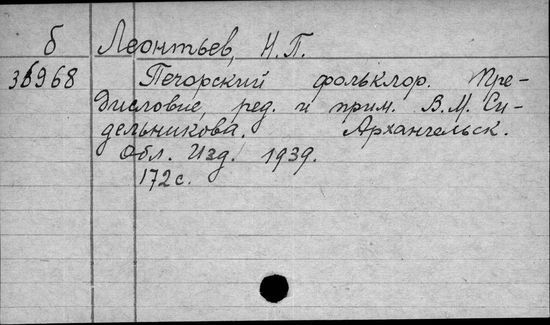 б Леонтьев, Н.П.
36968 Печорский фольклор. Пре-
дисловие, ред. и прим. В.М. Си-
дельникова. Архангельск.
Обл. Изд. 1939.
172 с.